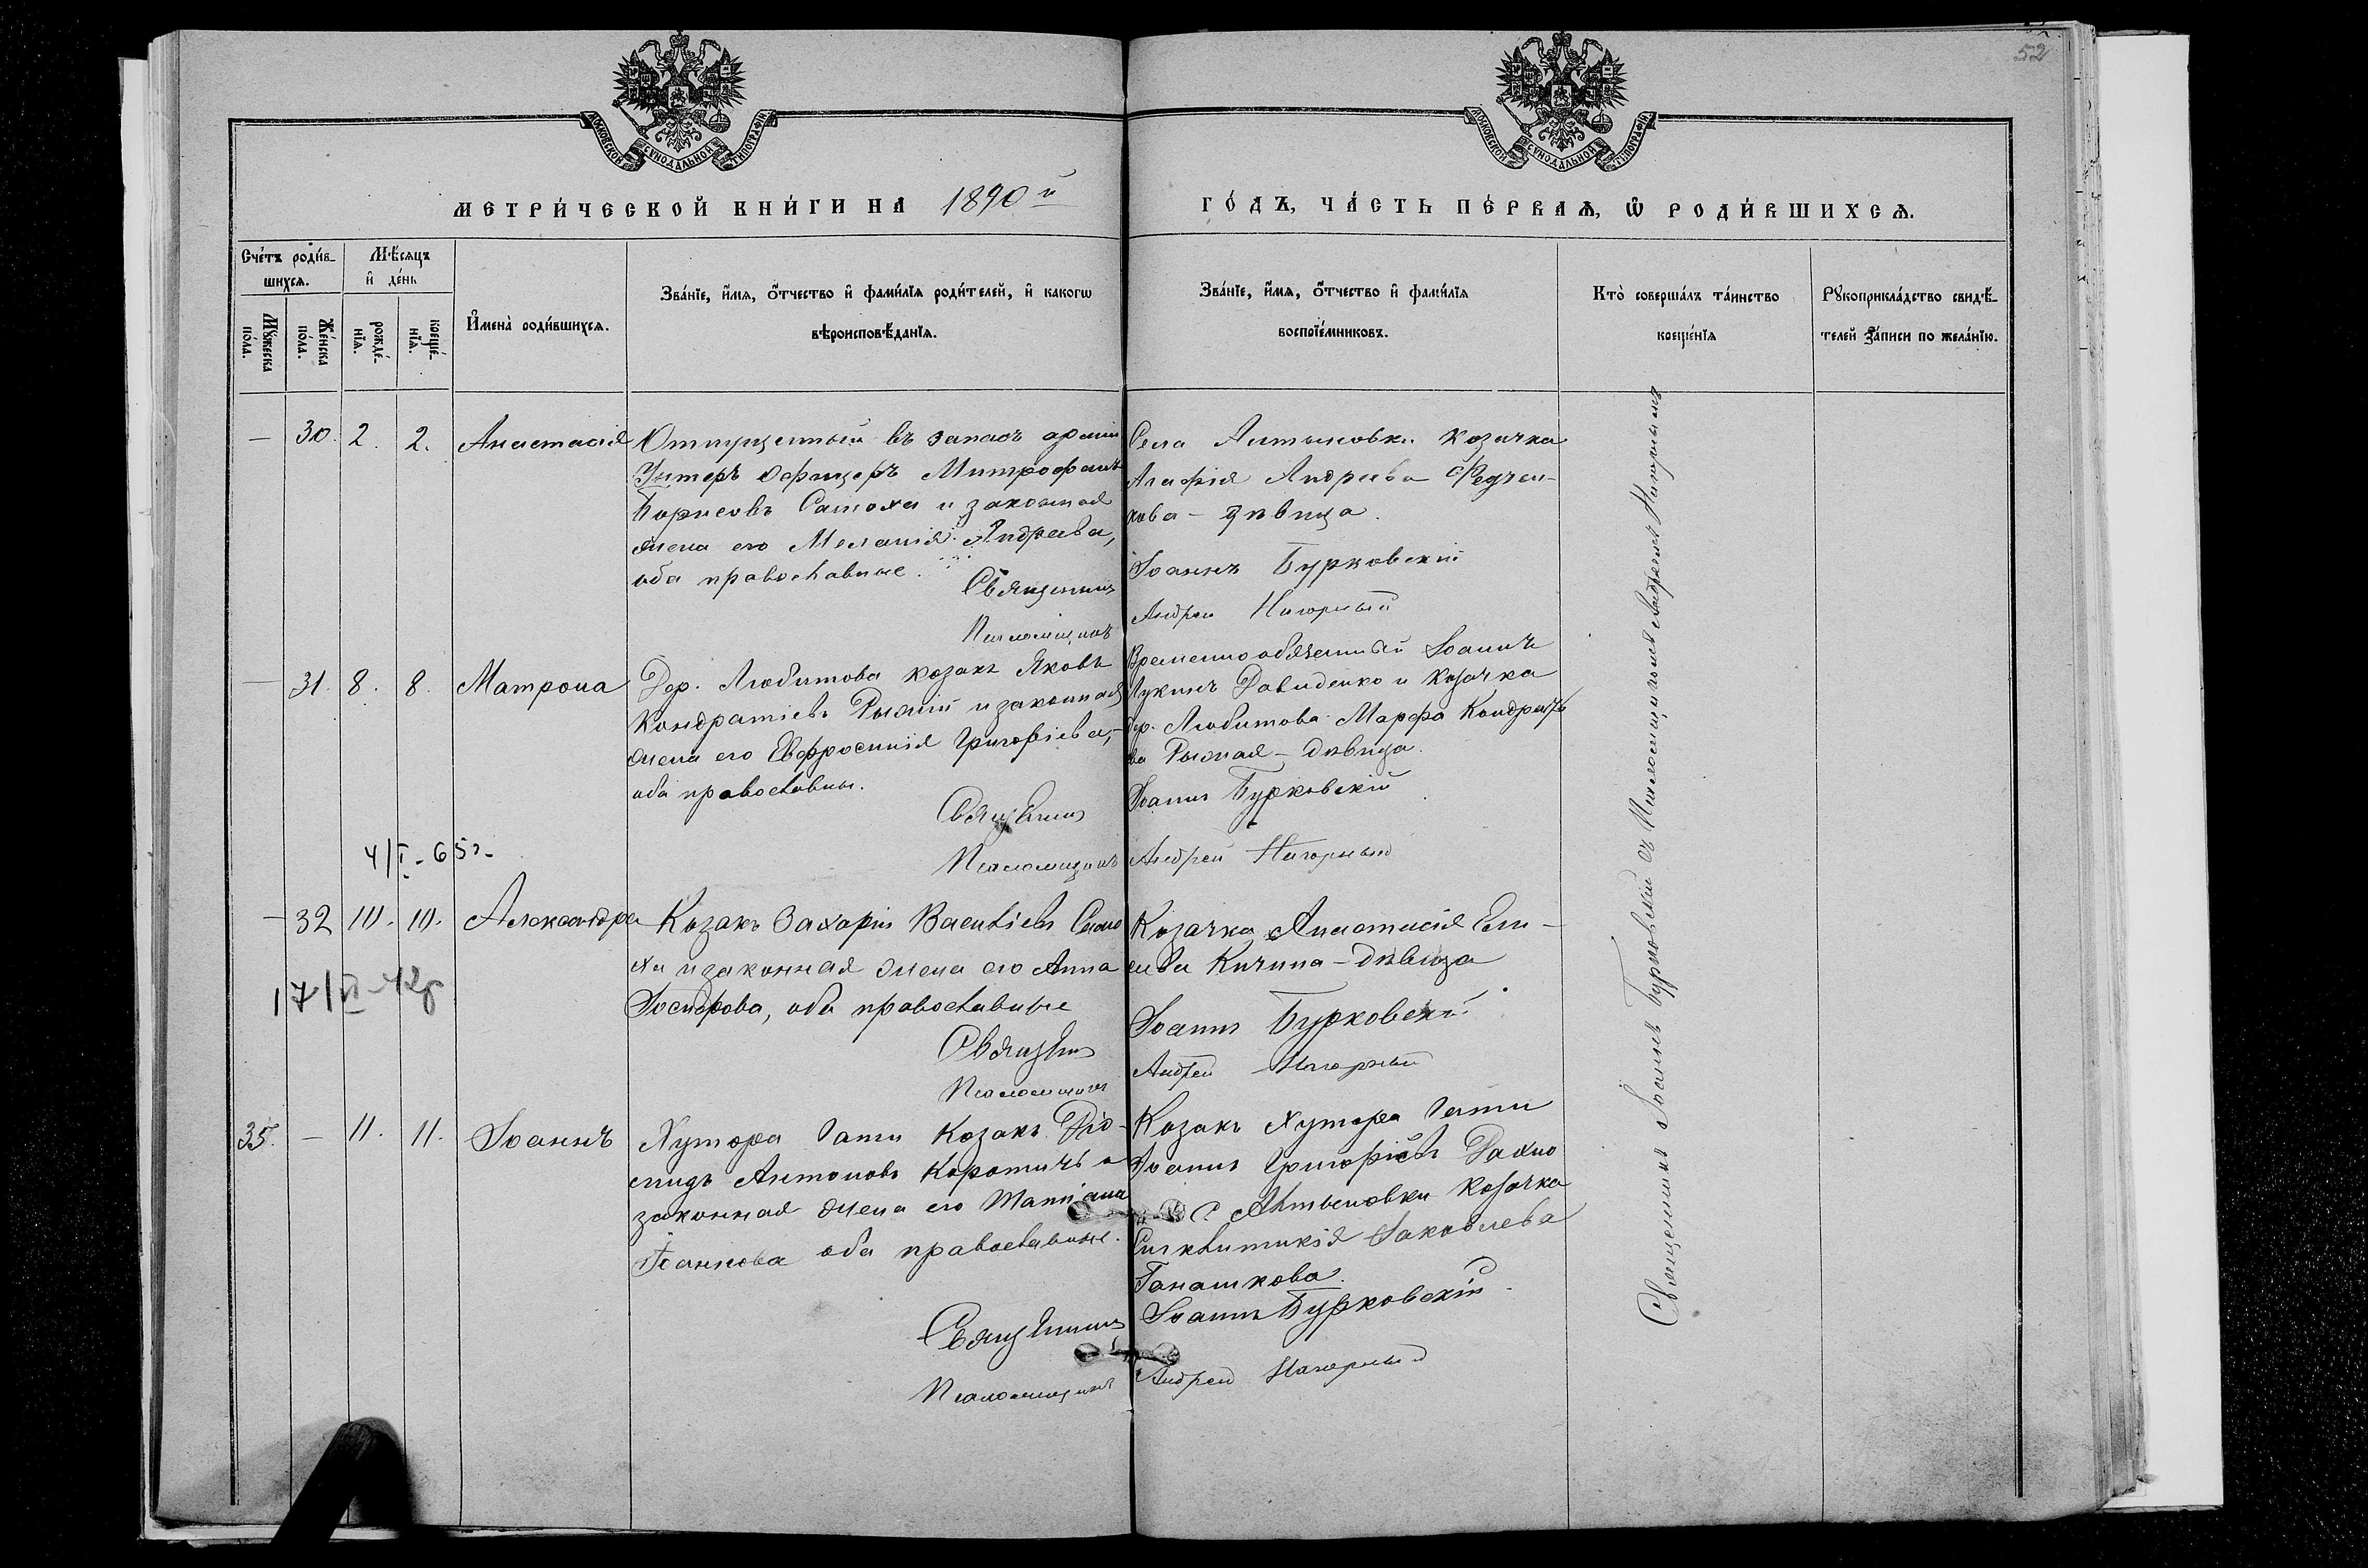 52
МОСКОВСКОЙ СѴНОДАЛЬНОЙ ТИПОГРАФІИ
МОСКОВСКОЙ СѴНОДАЛЬНОЙ ТИПОГРАФІИ
МЕТРИ́ЧЕСКОЙ КНИ́ГИ НА 1890й
ГО́ДЪ, ЧА́СТЬ ПЕ́РВАЯ, Ѡ҆ РОДИ́ВШИХСЯ.
Сче́тъ роди́в-
шихся.
Мꙋ́жеска по́ла.
Же́нска по́ла.
Мѣ́сяцъ и҆ де́нь
рожде́-нїя.
креще́-нїя.
И҆мена̀ роди́вшихся.
Зва́нїе, и҆́мя, ѻ҆́тчество и҆ фами́лїя роди́телей, и҆ какогѡ
вѣроисповѣ́данїя.
Зва́нїе, и҆́мя, ѻ҆́тчество и҆ фами́лїя
воспрїе́мниковъ.
Кто̀ соверша́лъ та́инство
креще́нїя
Рꙋкоприкла́дство свидѣ́-
телей за́писи по жела́нїю.
— 30. 2. 2. Анастасія
Отпущенный въ запасъ арміи
Унтеръ Офицеръ Митрофанъ
Борисовъ Самоха и законная
жена его Меланія Андреева,
оба православные.
Священникъ
Псаломщикъ
Села Алтыновки козачка
Агафія Андреева Федчен-
кова - дѣвица.
Іоаннъ Бурковскій
Андрей Нагорный
— 31. 8. 8. Матрона
Дер. Любитова козакъ Яковъ
Кондратіевъ Рыжій и законная
жена его Евфросинія Григоріева,-
оба православны.
Священникъ
Псаломщикъ
Временнообязанный Іоаннъ
Лукинъ Давиденко и козачка
дер. Любитова Марфа Кондратье
ва Рыжая - дѣвица.
Іоаннъ Бурковскій
Андрей Нагорный
4/I - 65г-
— 32 10. 10. Александра
Козакъ Захарій Васильевъ Само
ха и законная жена его Анна
Іосифова, оба православные
Священникъ
Псаломщикъ
Козачка Анастасія Ели-
сѣева Кичина - дѣвица
Іоаннъ Бурковскій
Андрей Нагорный
35. — 11. 11. Іоаннъ
Хутора Гати Козакъ Діо-
мидъ Антоновъ Коротичъ и
законная жена его Татіана
Іоаннова оба православные.
Священникъ
Псаломщикъ
Козакъ Хутора Гати
Іоаннъ Григоріевъ Дахно
и С. Алтыновки козачка
Синклитикія Іаковлева
Ганашкова.
Іоаннъ Бурковскій
Андрей Нагорный
Священникъ Іоаннъ Бурковскій съ Псаломщикомъ Андреемъ Нагорнымъ